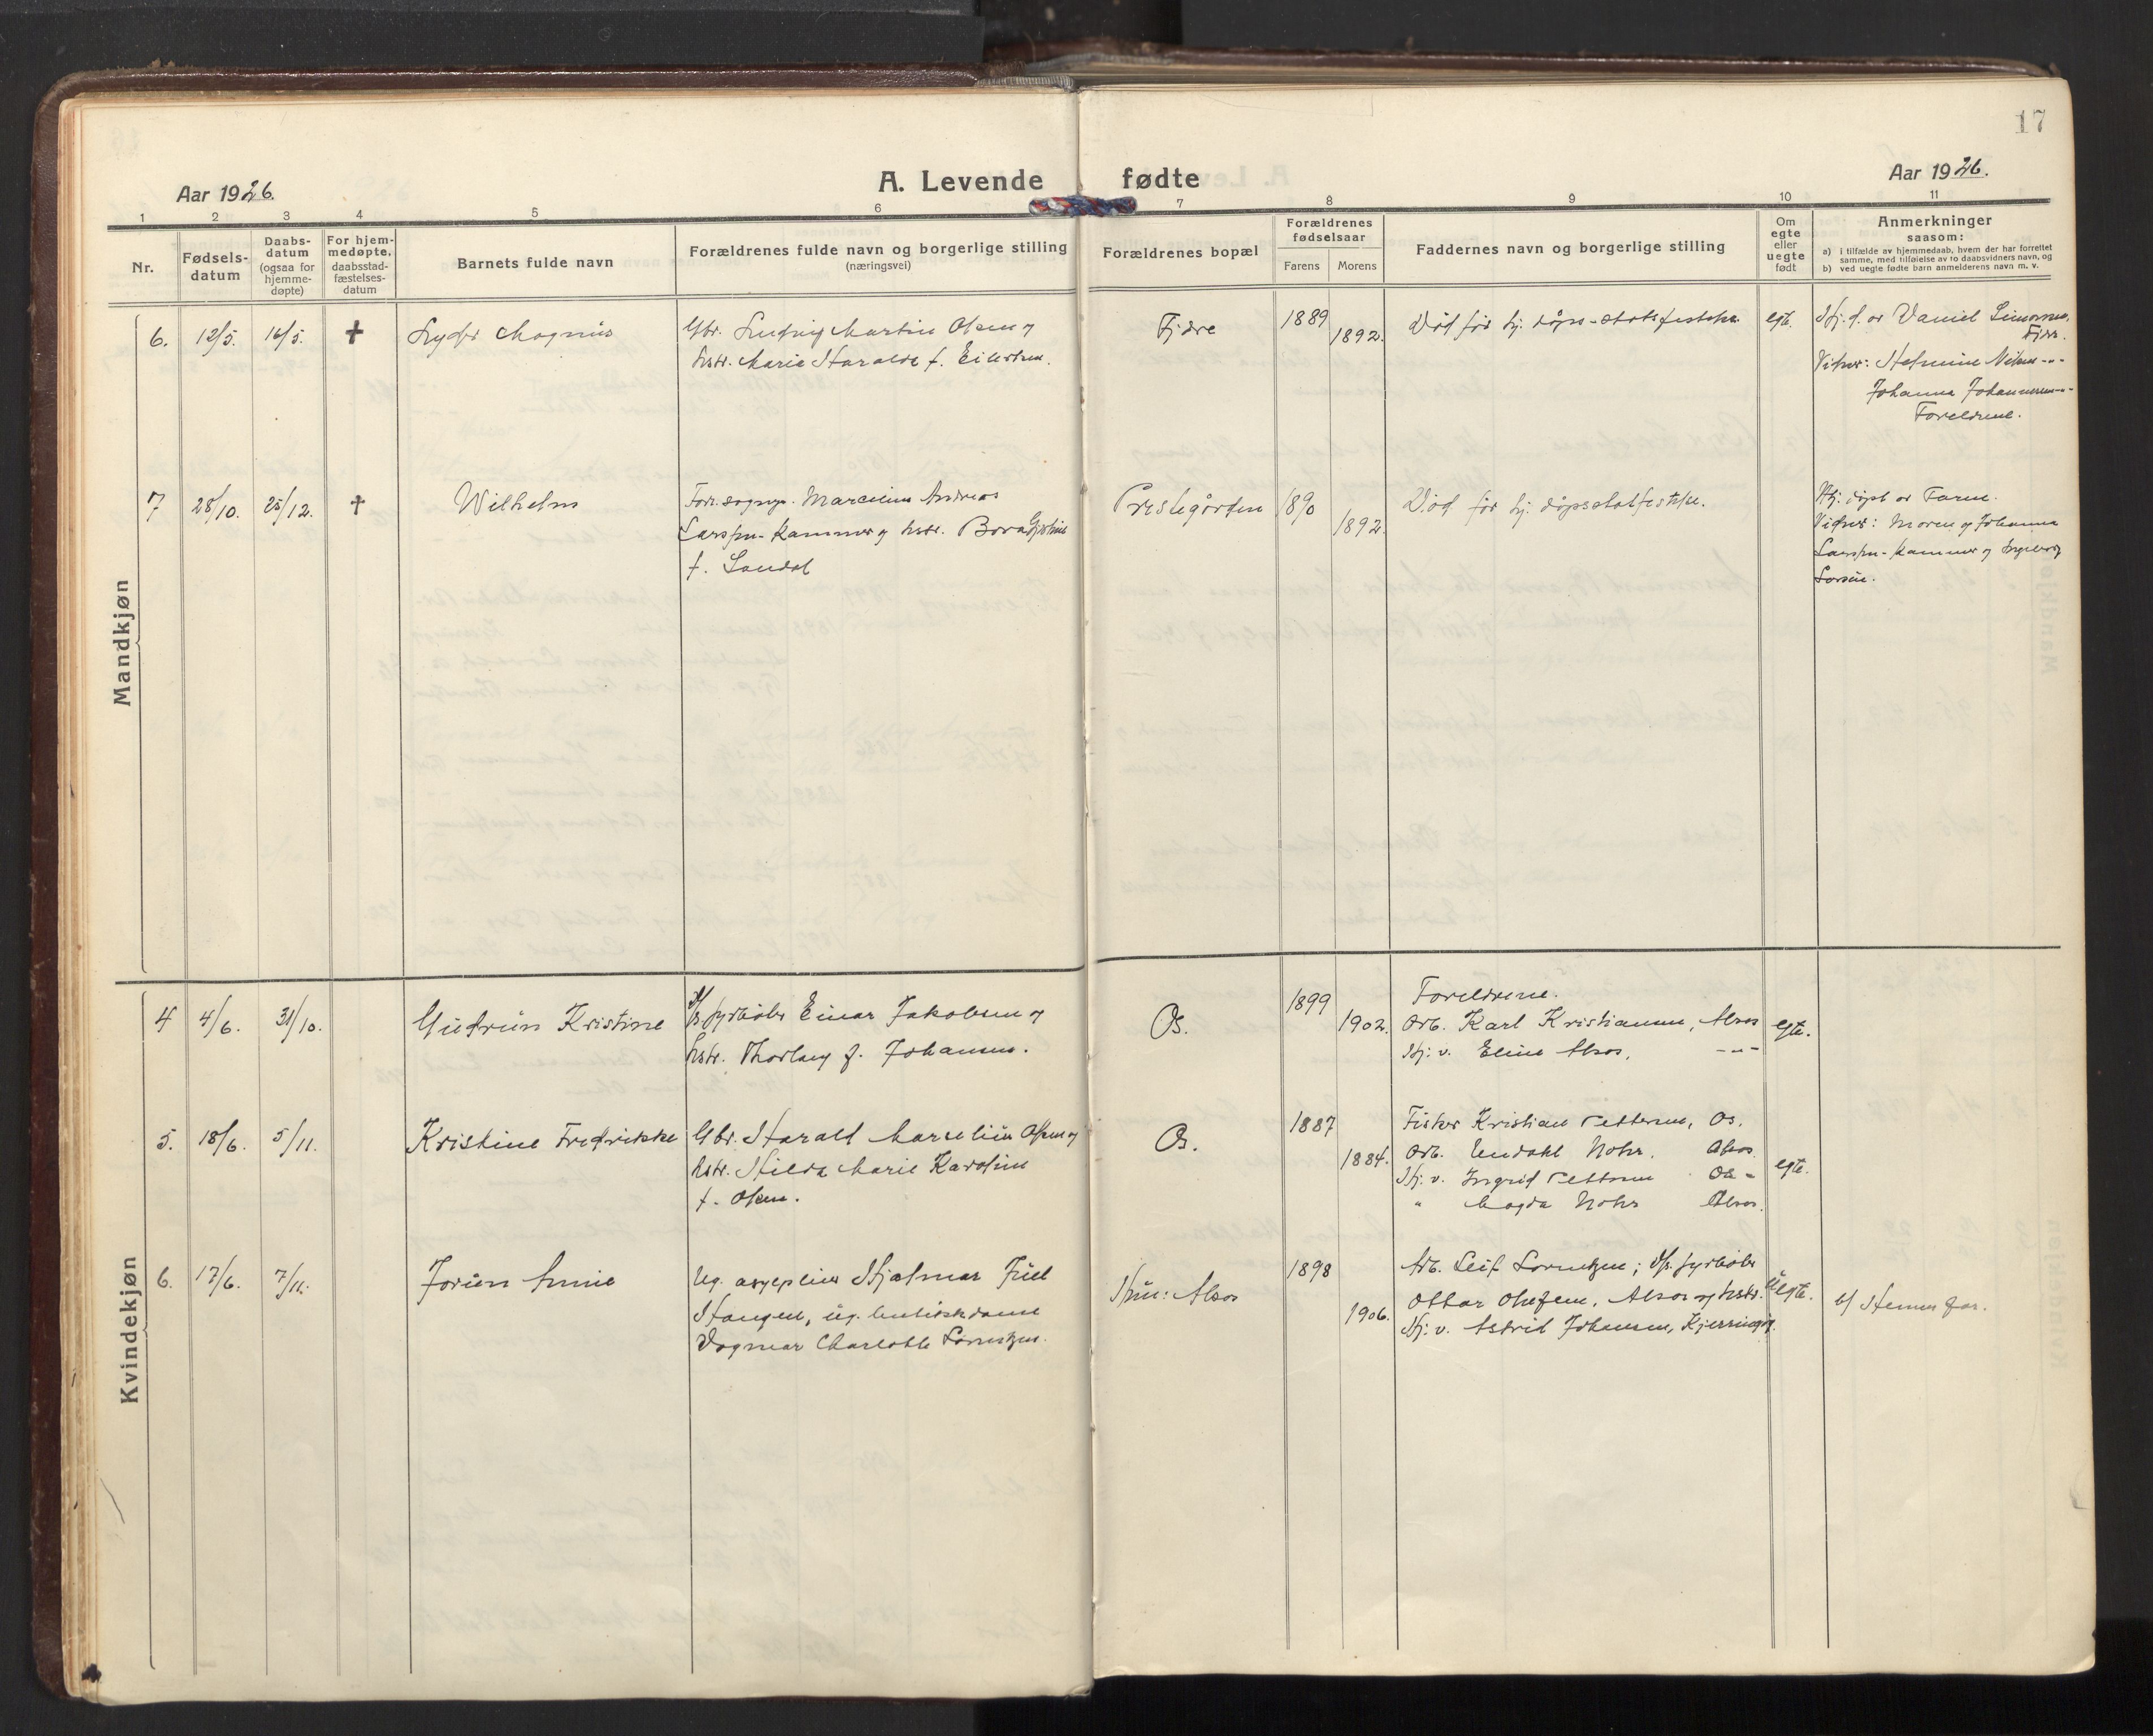 17
Aar 1926.
A. Levende fødte
Aar 1926.
1 2 3 4 5 6 7 8 9 10 11
Nr.
Fødsels-
datum
Daabs-
datum
(ogsaa for
hjemme-
døpte)
For hjem-
medøpte,
daabsstad-
fæstelses-
datum
Barnets fulde navn
Forældrenes fulde navn og borgerlige stilling
(næringsvei)
Forældrenes bopæl
Forældrenes
fødselsaar
Farens Morens
Faddernes navn og borgerlige stilling
Om
egte
eller
uegte
født
Anmerkninger
saasom:
a) i tilfælde av hjemmedaab, hvem der har forrettet
samme, med tilføielse av to daabsvidners navn, og
b) ved uegte fødte barn anmelderens navn m. v.
Mandkjøn
6. 12/5. 16/5. † Magnus
Gbr. Ludvig Martin Olsen og
hstr. Marie f. Eilertsen.
Fjære
1889
1892.
Død før hj. døps-
egte.
Hj. d. av Daniel
Vitner:
Johanna Johannessen -"-
Foreldrene.
7 28/10. 25/12. † Wilhelm
Marcelius Andreas
Larsen-Kammer og hstr. Bora
f. Sandal
Prestegården
1890
1892.
Død før hj. døpsstatfestelse.
Hj. døpt av Faren.
Vidner: Moren og Johanna
Larsen-Kammer og Ingeborg
Kvindekjøn
4 4/6. 31/10. Gudrun Kristine
fyrbøter Einar Jakobsen og
hstr. Thorlaug f. Johansen.
Os.
1899
1902.
Foreldrene.
Arb. Karl Kristiansen, Alsos
Hj: v. Eline Alsos, -"-
egte.
5. 18/6. 5/11. Kristine Fredrikke
Gbr. Harald Marselius Olsen og
hstr. Hilda Marie Karoline
f. Olsen.
Os.
1887
1884.
Fisker Kristian Pettersen, Os.
Arb. Endahl Nohr, Alsos
Hj: v. Ingrid Pettersen Os -
" Magda Nohr Alsos.
egte.
6. 17/6. 7/11. Jorun Annie
Ug. Hjalmar Friel
Stangel, ug. butikkdame
Dagmar Charlotte Lorentzen.
Alsos
1898
1906.
Arb. Leif Lorentzen; fyrbøter
Ottar Olufsen, Alsos og hstr.
Hj: v. Astrid Johansen, Kjerringøy.
Uegte.
b/ Hennes far.